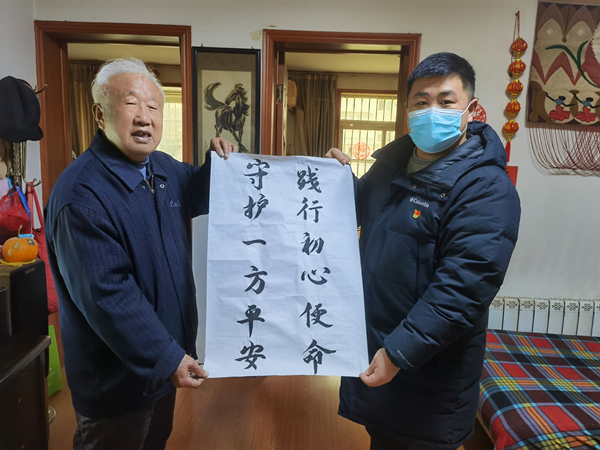 践行初心使命
守护一方平安
Columbia